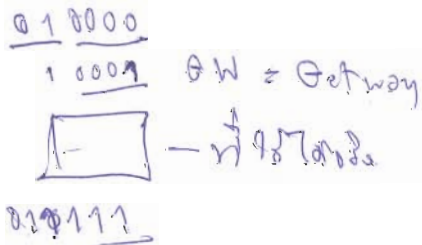 010000
10001 GW = Getway
- ที่ใช้ได้จริง
010111